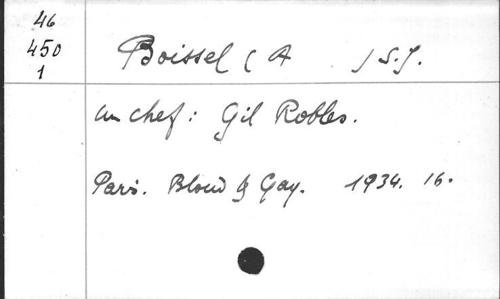 46
450
1
Boissel ( A ) S.J.
Un chef: Gil Robles.
Paris. Bloud & Gay. 1934. 16.